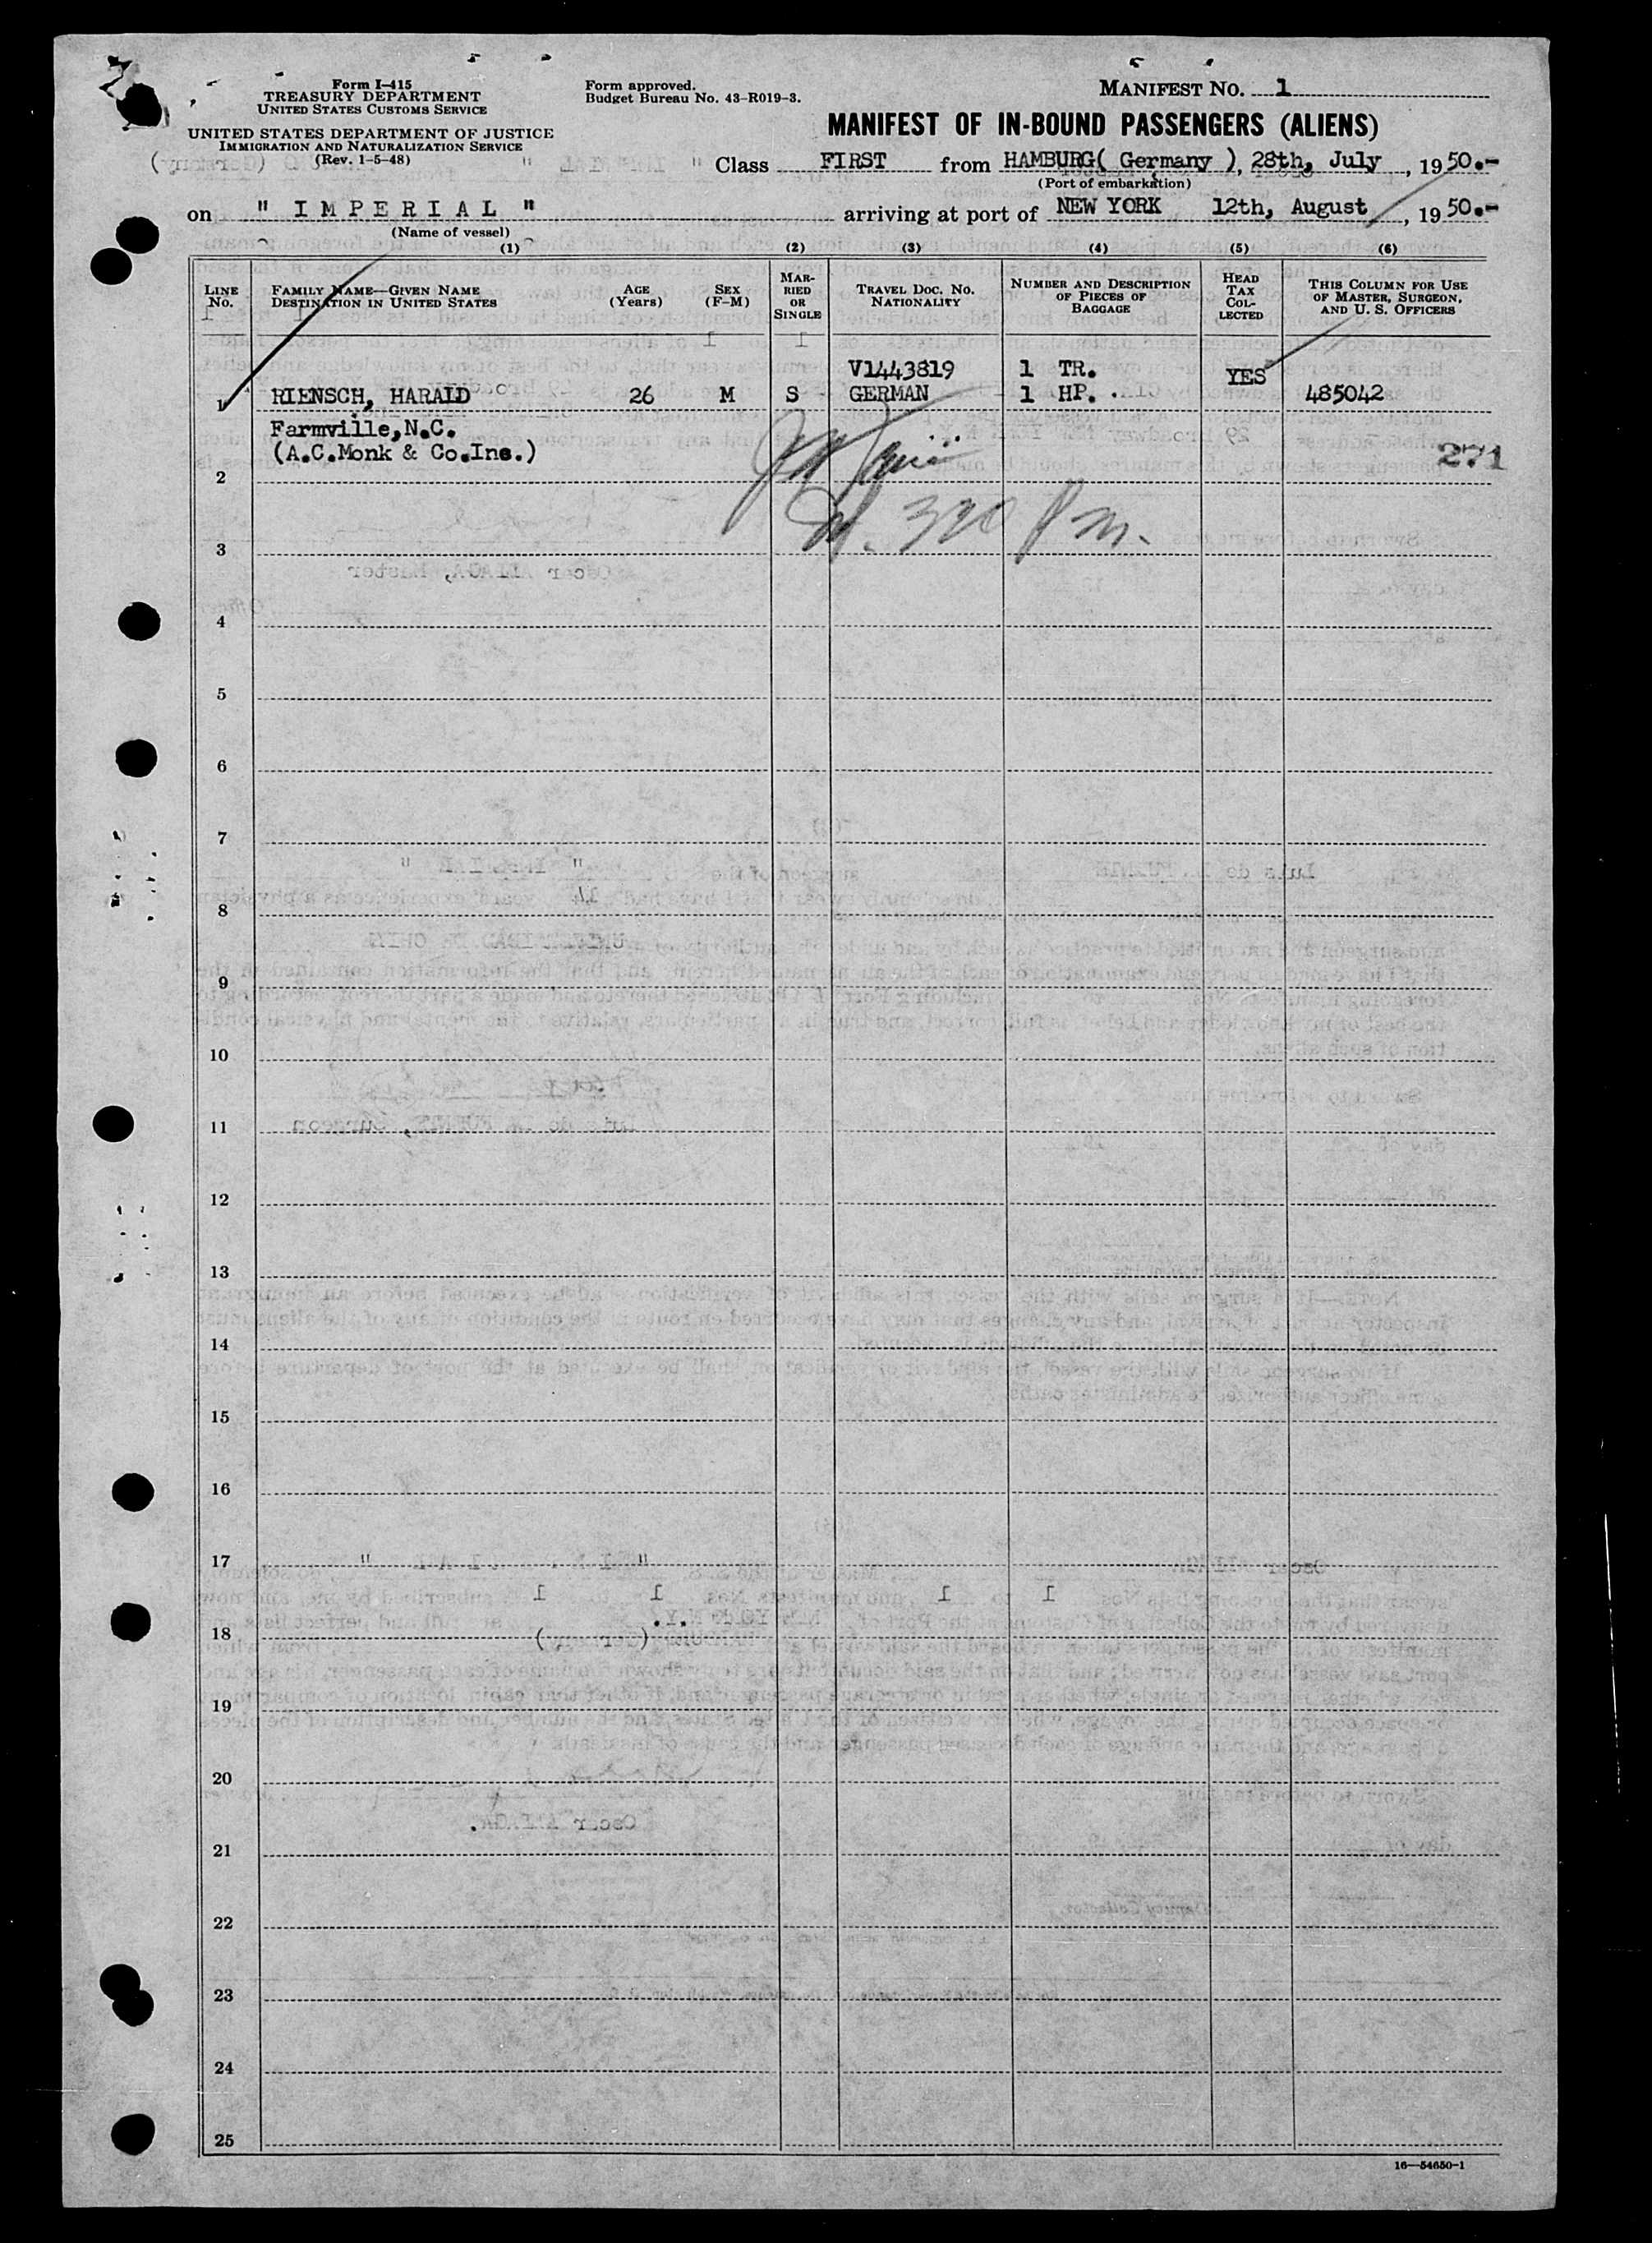 Form I-415
TREASURY DEPARTMENT
UNITED STATES CUSTOMS SERVICE
UNITED STATES DEPARTMENT OF JUSTICE
IMMIGRATION AND NATURALIZATION SERVICE
(Rev. 1-5-48)
Form approved.
Budget Bureau No. 43-R019-3.
MANIFEST NO. 1
MANIFEST OF IN-BOUND PASSENGERS (ALIENS)
Class FIRST from HAMBURG( Germany ), 28th, July, 1950.-
(Port of embarkation)
on " I M P E R I A L " arriving at port of NEW YORK 12th, August, 1950.-
(Name of vessel)
(1) (2) (3) (4) (5) (6)
LINE NO.
FAMILY NAME—GIVEN NAME
DESTINATION IN UNITED STATES
AGE (Years)
SEX (F-M)
MARRIED OR SINGLE
TRAVEL DOC. NO.
NATIONALITY
NUMBER AND DESCRIPTION OF PIECES OF BAGGAGE
HEAD TAX COLLECTED
THIS COLUMN FOR USE OF MASTER, SURGEON, AND U. S. OFFICERS
V1443819 1 TR. YES
1 RIENSCH, HARALD 26 M S GERMAN 1 HP. 485042
Farmville,N.C.
(A.C.Monk & Co.Inc.)
271
2
320 Pm.
3
4
5
6
7
8
9
10
11
12
13
14
15
16
17
18
19
20
21
22
23
24
25
16—54650-1